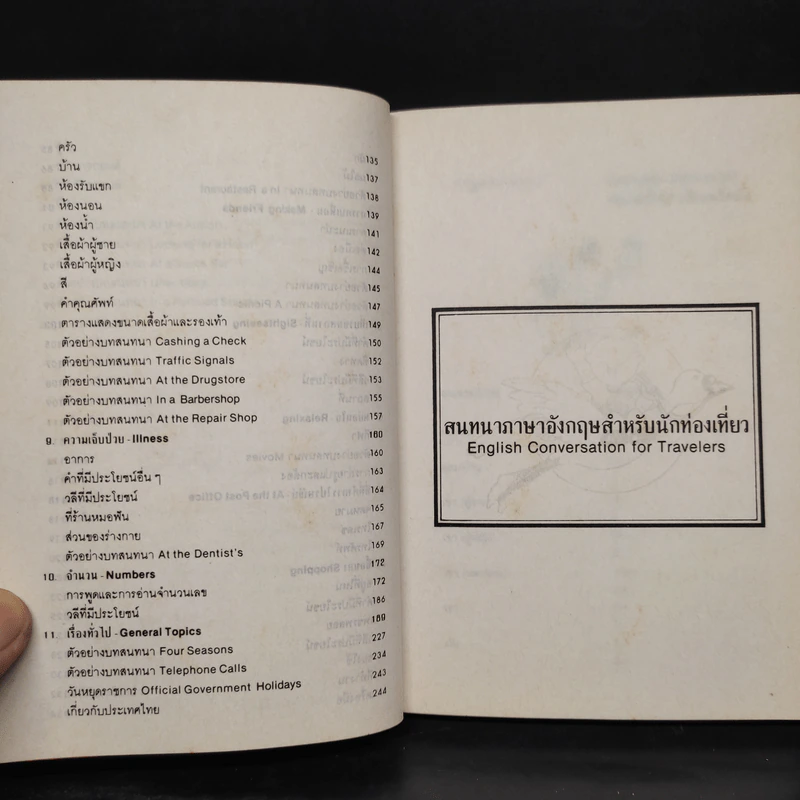 ครัว 135
บ้าน 137
ห้องรับแขก 138
ห้องนอน 139
ห้องน้ำ 141
เสื้อผ้าผู้ชาย 142
เสื้อผ้าผู้หญิง 144
สี 145
คำคุณศัพท์ 147
ตารางแสดงขนาดเสื้อผ้าและรองเท้า 149
ตัวอย่างบทสนทนา Cashing a Check 150
ตัวอย่างบทสนทนา Traffic Signals 152
ตัวอย่างบทสนทนา At the Drugstore 153
ตัวอย่างบทสนทนา In a Barbershop 155
ตัวอย่างบทสนทนา At the Repair Shop 157
9. ความเจ็บป่วย - Illness 160
อาการ 160
คำที่มีประโยชน์อื่น ๆ 163
วลีที่มีประโยชน์ 164
ที่ร้านหมอฟัน 165
ส่วนของร่างกาย 167
ตัวอย่างบทสนทนา At the Dentist's 169
10. จำนวน - Numbers 172
การพูดและการอ่านจำนวนเลข 172
วลีที่มีประโยชน์ 186
11. เรื่องทั่วไป - General Topics 189
ตัวอย่างบทสนทนา Four Seasons 227
ตัวอย่างบทสนทนา Telephone Calls 234
วันหยุดราชการ Official Government Holidays 243
เกี่ยวกับประเทศไทย 244
สนทนาภาษาอังกฤษสำหรับนักท่องเที่ยว
English Conversation for Travelers